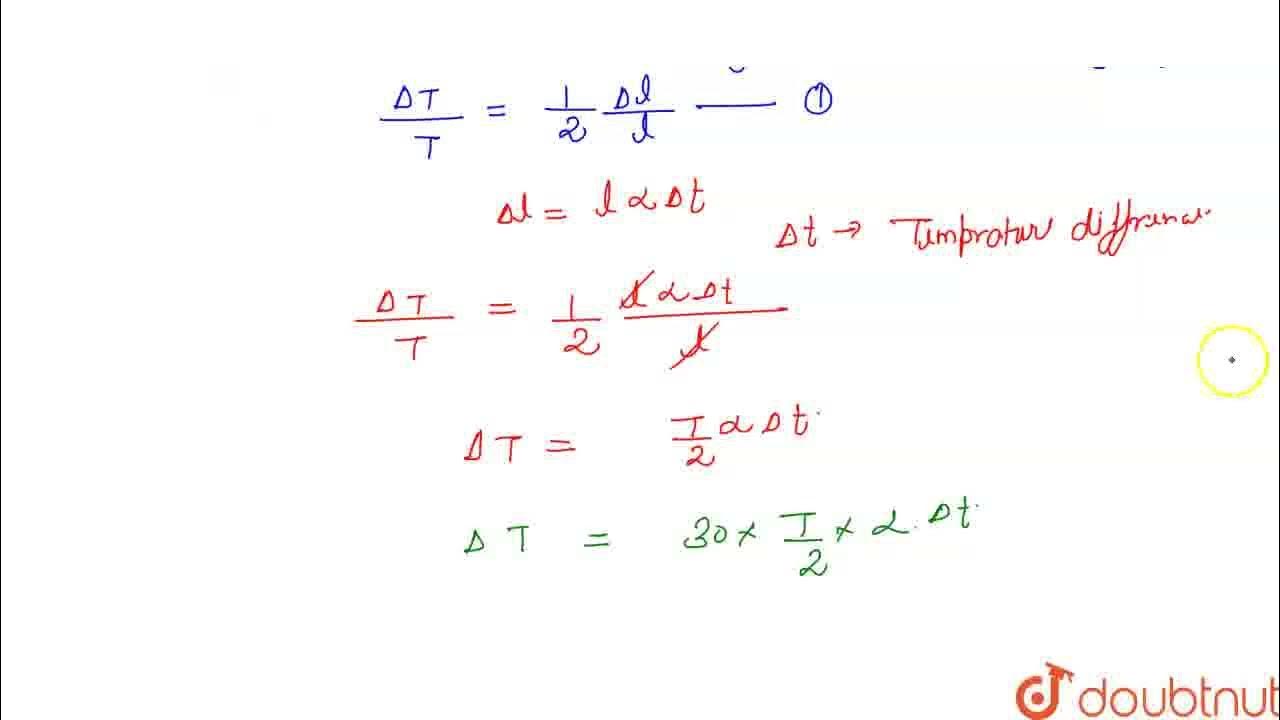 ΔT/T = 1/2 Δl/l —— ①
Δl = l α Δt
Δt → Tempratur diffrence
ΔT/T = 1/2 l α Δt/l
ΔT = T/2 α Δt
ΔT = 30 × T/2 × α . Δt
doubtnut